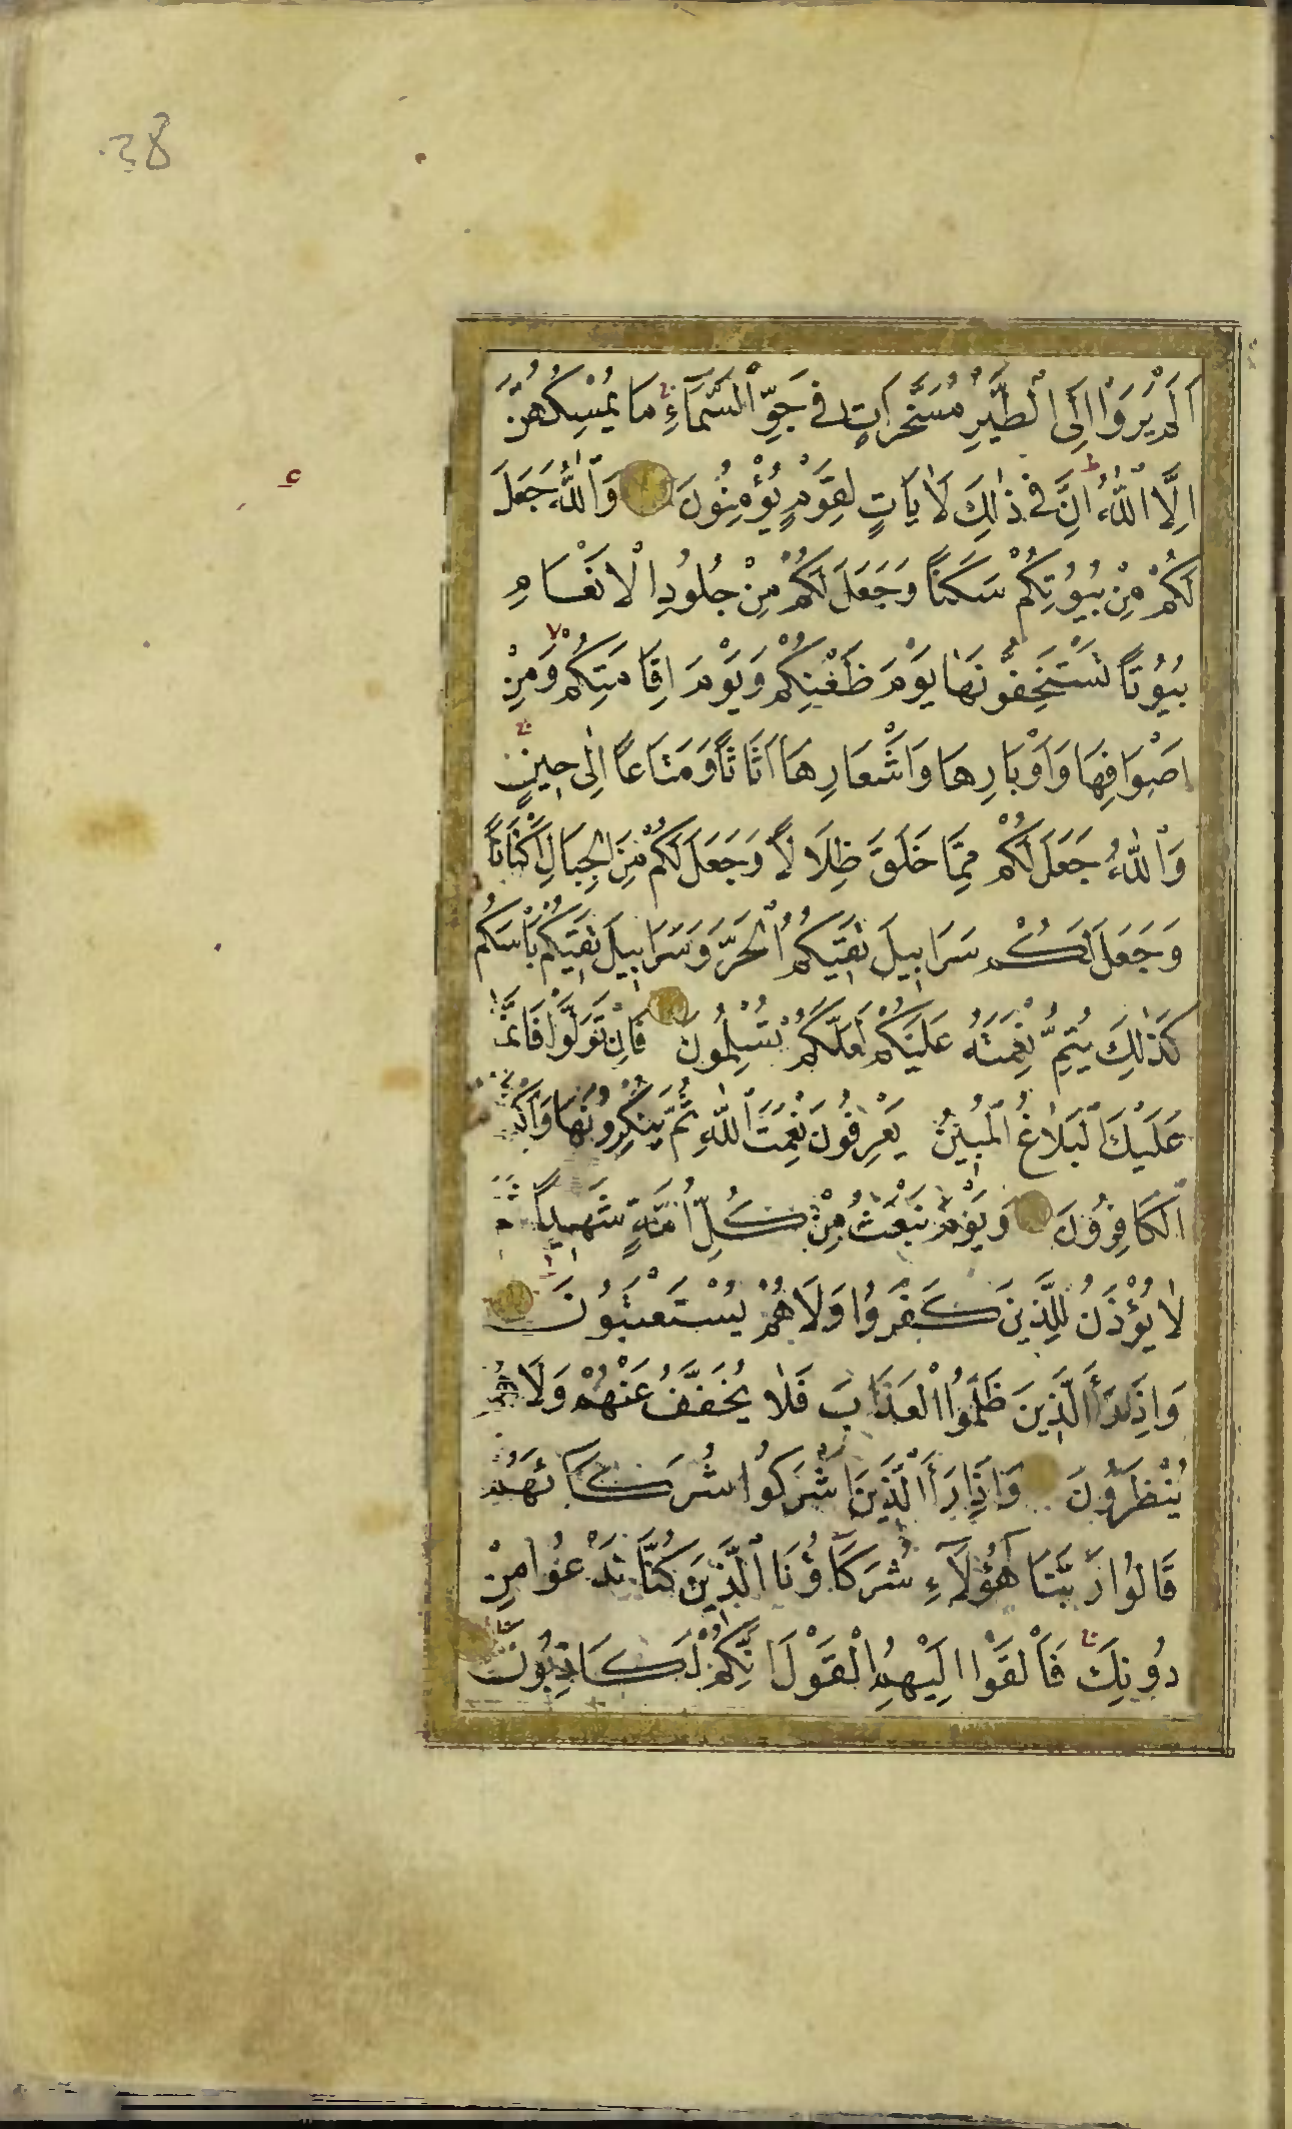 38
اَلَمْ يَرَوْا اِلَى الْطَّيْرِ مُسَخَّرَاتٍ فِى جَوِّ الْسَّمَآءِ مَا يُمْسِكُهُنَّ
اِلَّا اللّٰهُ اِنَّ فِى ذٰلِكَ لَاٰيَاتٍ لِقَوْمٍ يُؤْمِنُونَ وَاللّٰهُ جَعَلَ
لَكُمْ مِنْ بُيُوتِكُمْ سَكَنًا وَجَعَلَ لَكُمْ مِنْ جُلُودِ الْاَنْعَامِ
بُيُوتًا تَسْتَخِفُّونَهَا يَوْمَ ظَعْنِكُمْ وَيَوْمَ اِقَامَتِكُمْ وَمِنْ
اَصْوَافِهَا وَاَوْبَارِهَا وَاَشْعَارِهَا اَثَاثًا وَمَتَاعًا اِلٰى حِينٍ
وَاللّٰهُ جَعَلَ لَكُمْ مِمَّا خَلَقَ ظِلَالًا وَجَعَلَ لَكُمْ مِنَ الْجِبَالِ اَكْنَانًا
وَجَعَلَ لَكُمْ سَرَابِيلَ تَقِيَكُمُ الْحَرَّ وَسَرَابِيلَ تَقِيَكُمْ بَأْسَكُمْ
كَذٰلِكَ يُتِمُّ نِعْمَتَهُ عَلَيْكُمْ لَعَلَّكُمْ تُسْلِمُونَ فَاِنْ تَوَلَّوْا فَاِنَّمَا
عَلَيْكَ الْبَلَاغُ الْمُبِينُ يَعْرِفُونَ نِعْمَتَ اللّٰهِ ثُمَّ يُنْكِرُونَهَا
الْكَافِرُونَ وَيَوْمَ نَبْعَثُ مِنْ كُلِّ اُمَّةٍ شَهِيدًا ثُمَّ
لَا يُؤْذَنُ لِلَّذِينَ كَفَرُوا وَلَا هُمْ يُسْتَعْتَبُونَ
وَاِذَا رَاَ الَّذِينَ ظَلَمُوا الْعَذَابَ فَلَا يُخَفَّفُ عَنْهُمْ وَلَا هُمْ
يُنْظَرُونَ وَاِذَا رَاَ الَّذِينَ اَشْرَكُوا شُرَكَآءَهُمْ
قَالُوا رَبَّنَا هٰٓؤُلَآءِ شُرَكَآؤُنَا الَّذِينَ كُنَّا نَدْعُوا مِنْ
دُونِكَ فَاَلْقَوْا اِلَيْهِمُ الْقَوْلَ اِنَّكُمْ لَكَاذِبُونَ